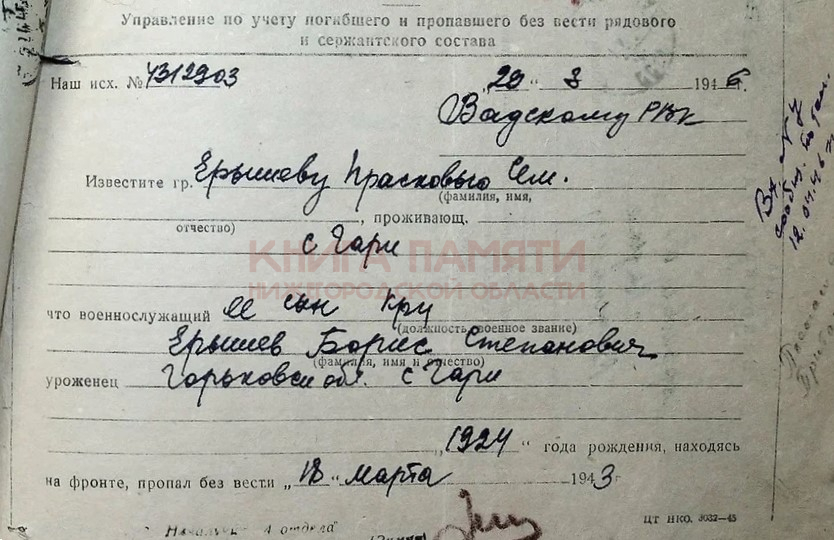 Управление по учету погибшего и пропавшего без вести рядового
и сержантского состава
Наш исх. № 4312903 „29“ 3 1946 г.
Вадскому РВК
Известите гр. Ерышеву Прасковью Сем.
(фамилия, имя,
отчество) , проживающ.
с Гари
КНИГА ПАМЯТИ
НИЖЕГОРОДСКОЙ ОБЛАСТИ
что военнослужащий ее сын кр-ц
(должность, военное звание)
Ерышев Борис Степанович
(фамилия, имя и отчество)
уроженец Горьковск обл. с Гари
„1924“ года рождения, находясь
на фронте, пропал без вести „18“ марта 1943 г
ЦТ НКО. 3032—45
Начальник 4 отдела
Вх. №
12.04.46 г.